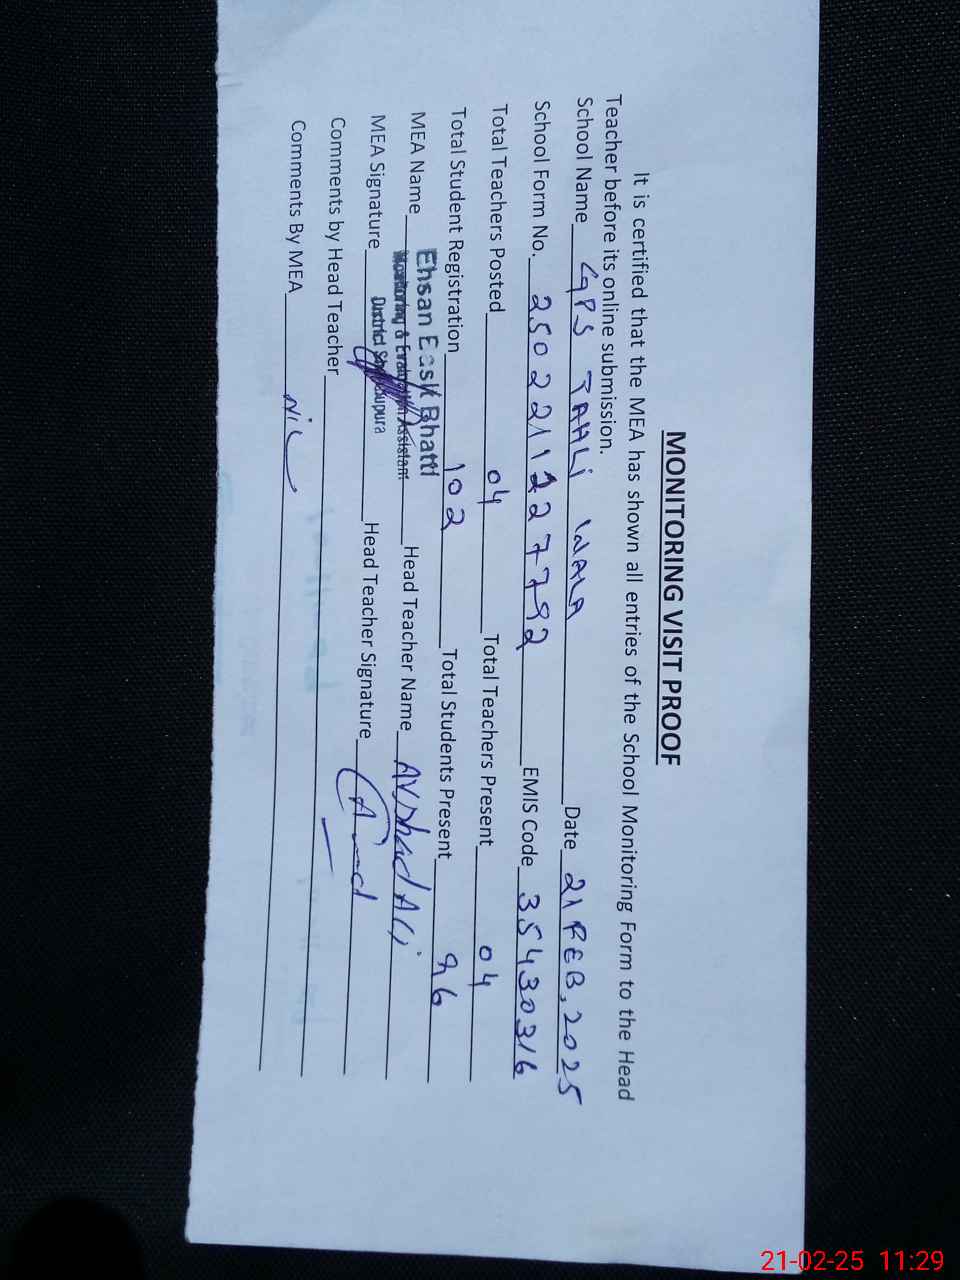 MONITORING VISIT PROOF
It is certified that the MEA has shown all entries of the School Monitoring Form to the Head
Teacher before its online submission.
School Name GPS TAHLi WALA Date 21 FEB, 2025
School Form No. 2502211227792 EMIS Code 35430316
Total Teachers Posted 04 Total Teachers Present 04
Total Student Registration 102 Total Students Present 96
Ehsan Bhatti
MEA Name Monitoring & Evaluation Assistant Head Teacher Name Arshad Ali
District Sheikhupura
MEA Signature Head Teacher Signature
Comments by Head Teacher
Comments By MEA NiL
21-02-25 11:29